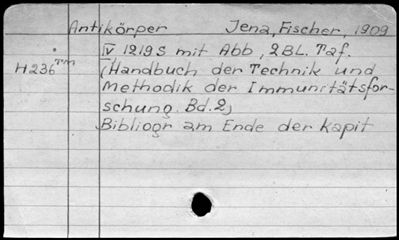 Antikörper Jena, Fischer, 1909
IV 1219 S mit Abb, 2 BL. Taf.
H236TM (Handbuch der Technik und
Methodik der Immunitätsfor-
schung. Bd. 2)
Bibliogr am Ende der Kapit